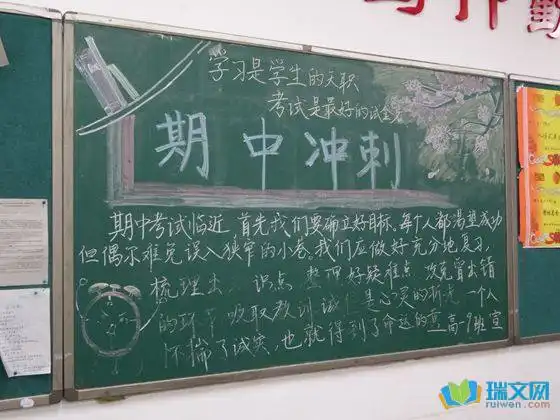 学习是学生的天职
考试是最好的试金石
期中冲刺
期中考试临近,首先我们要确立好目标。每个人都渴望成功
但偶尔难免误入狭窄的小巷。我们应做好充分地复习,
梳理出 识点 整理好疑难点 攻克冒出错
的环节 吸取教训 诚 是心灵的 一个人
怀揣了诚实,也就得到了命运的 高一9班宣
瑞文网
ruiwen.com